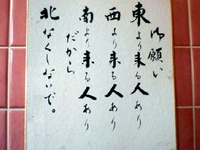 御願い
東より来る人あり
西より来る人あり
南より来る人あり
だから
北なくしないで。